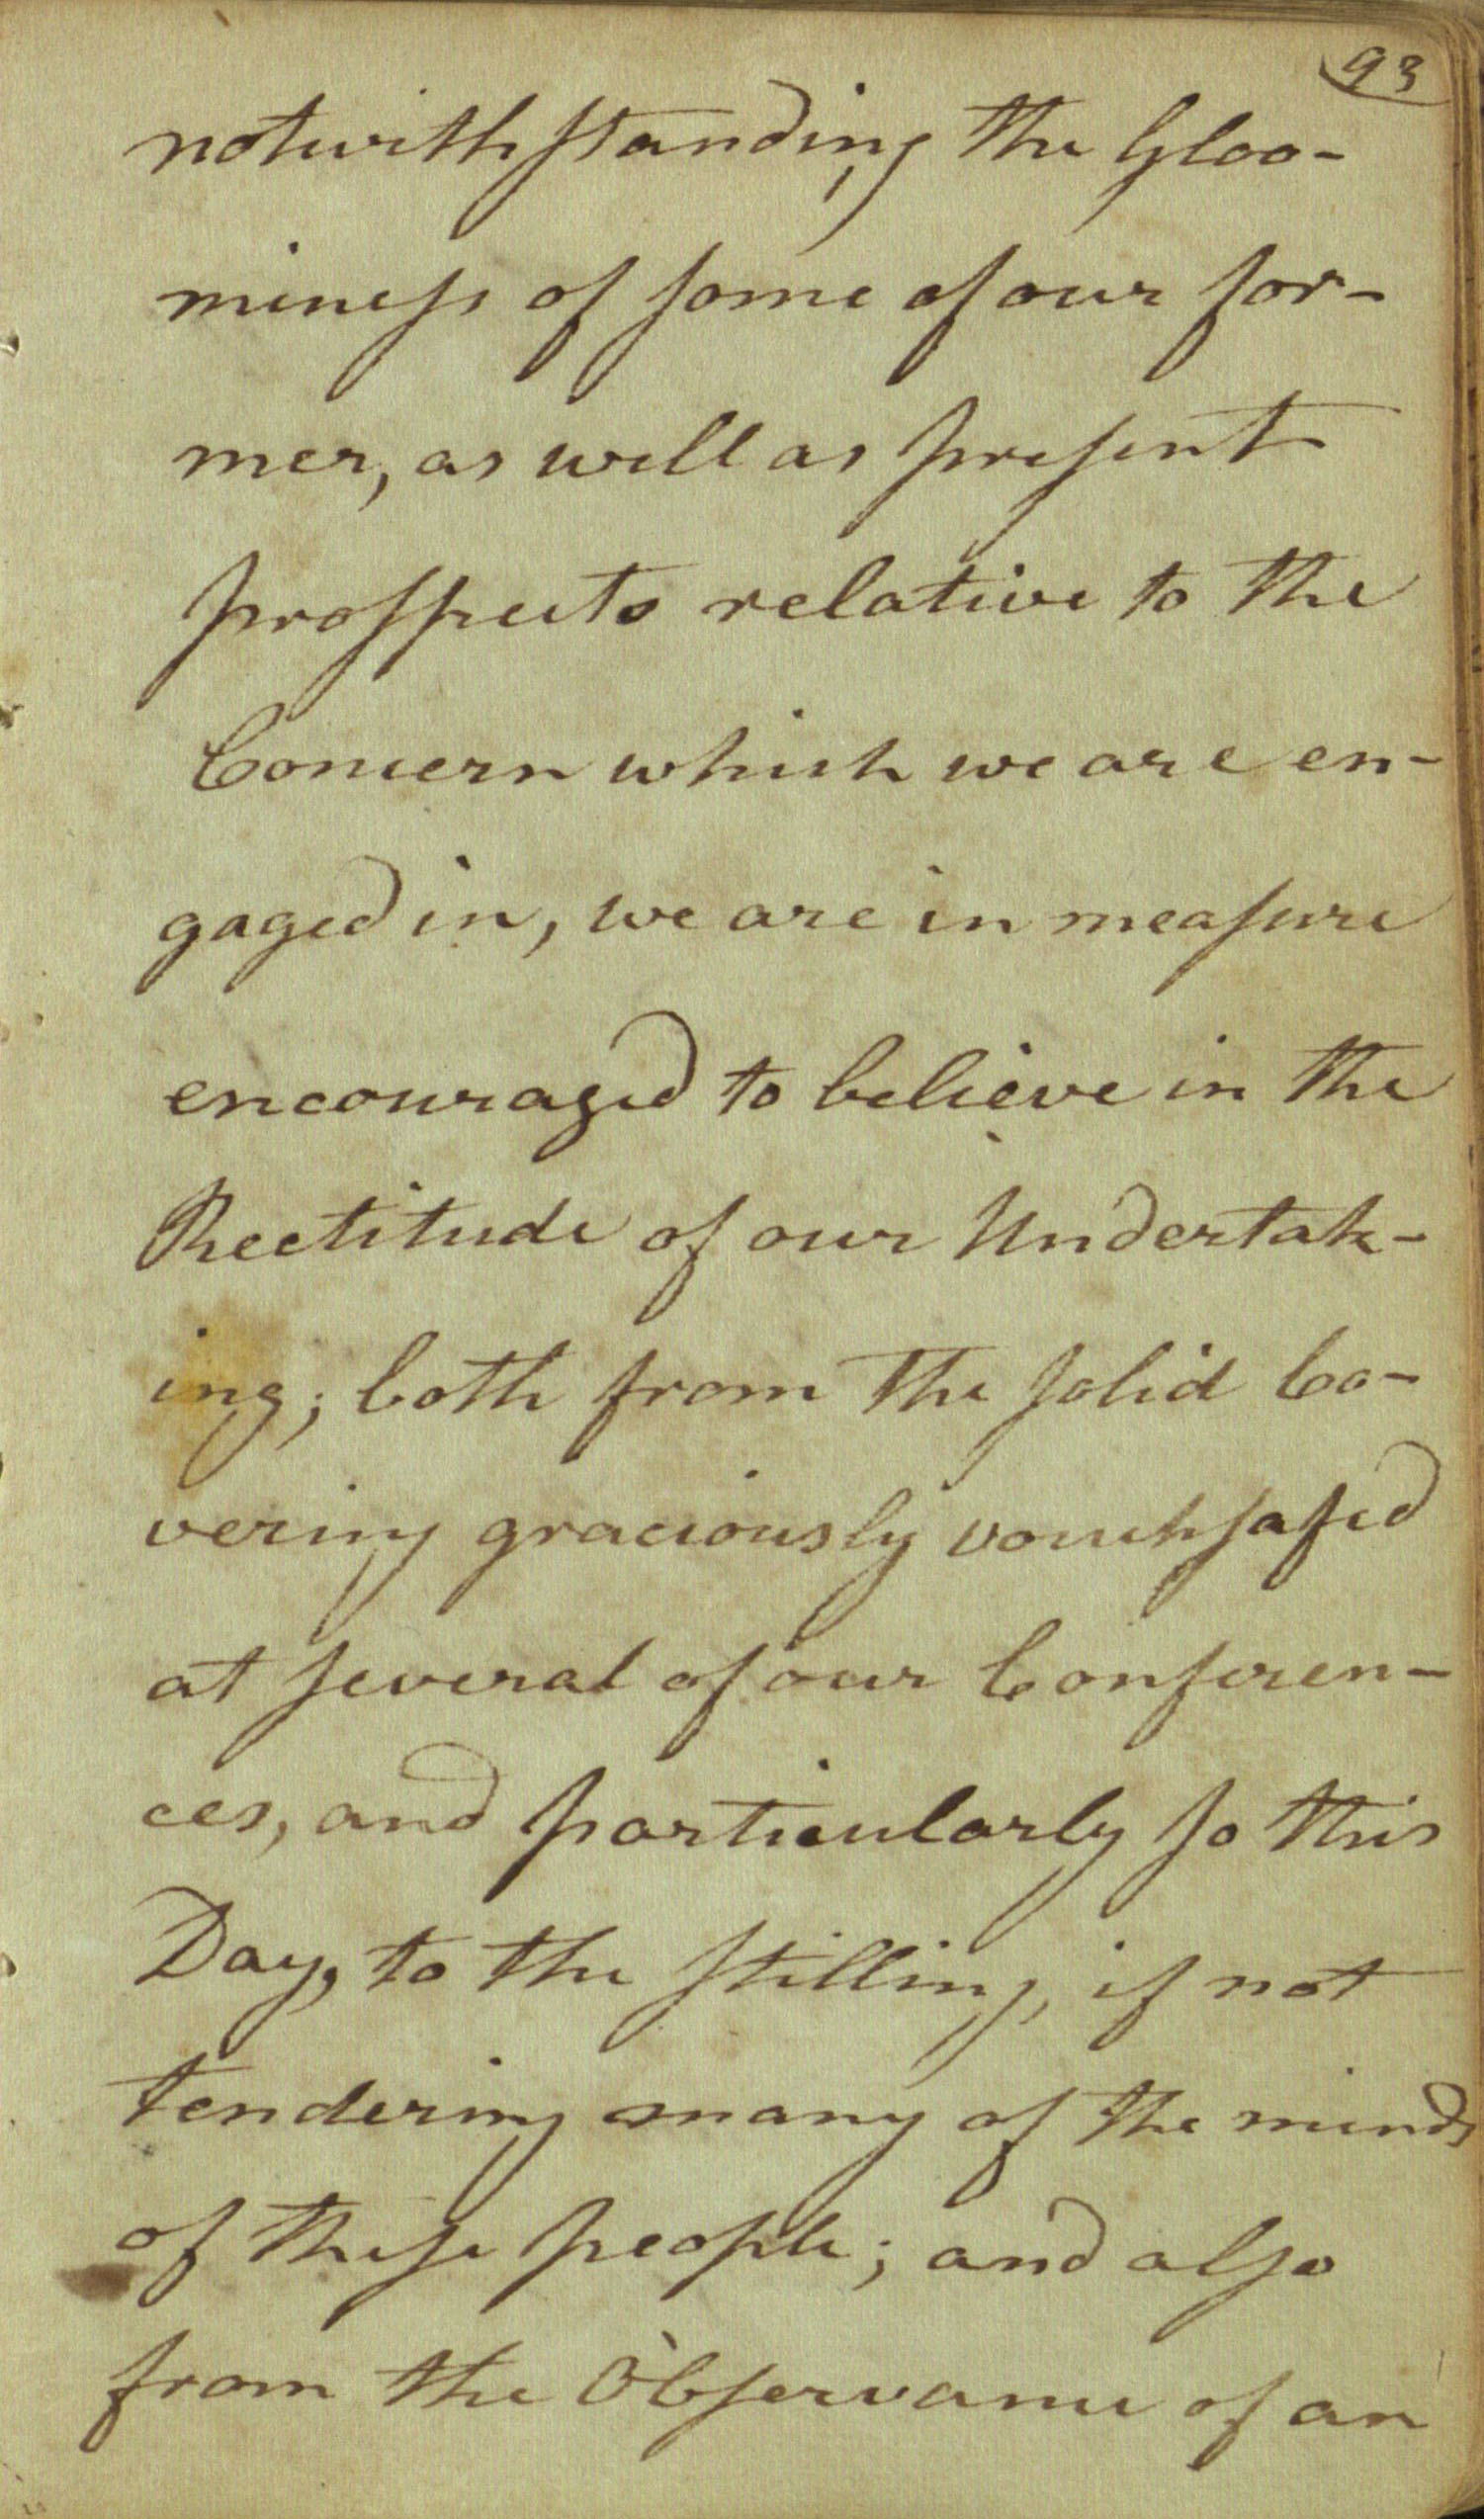 93
notwithstanding the Gloo-
miness of some of our for-
mer, as well as present
prospects relative to the
Concern which we are en-
gaged in, we are in measure
encouraged to believe in the
Rectitude of our Undertak-
ing; both from the solid Co-
vering graciously vouchsafed
at several of our Conferen-
ces, and particularly so this
Day, to the stilling, if not
tendering many of the minds
of these people; and also
from the Observance of an